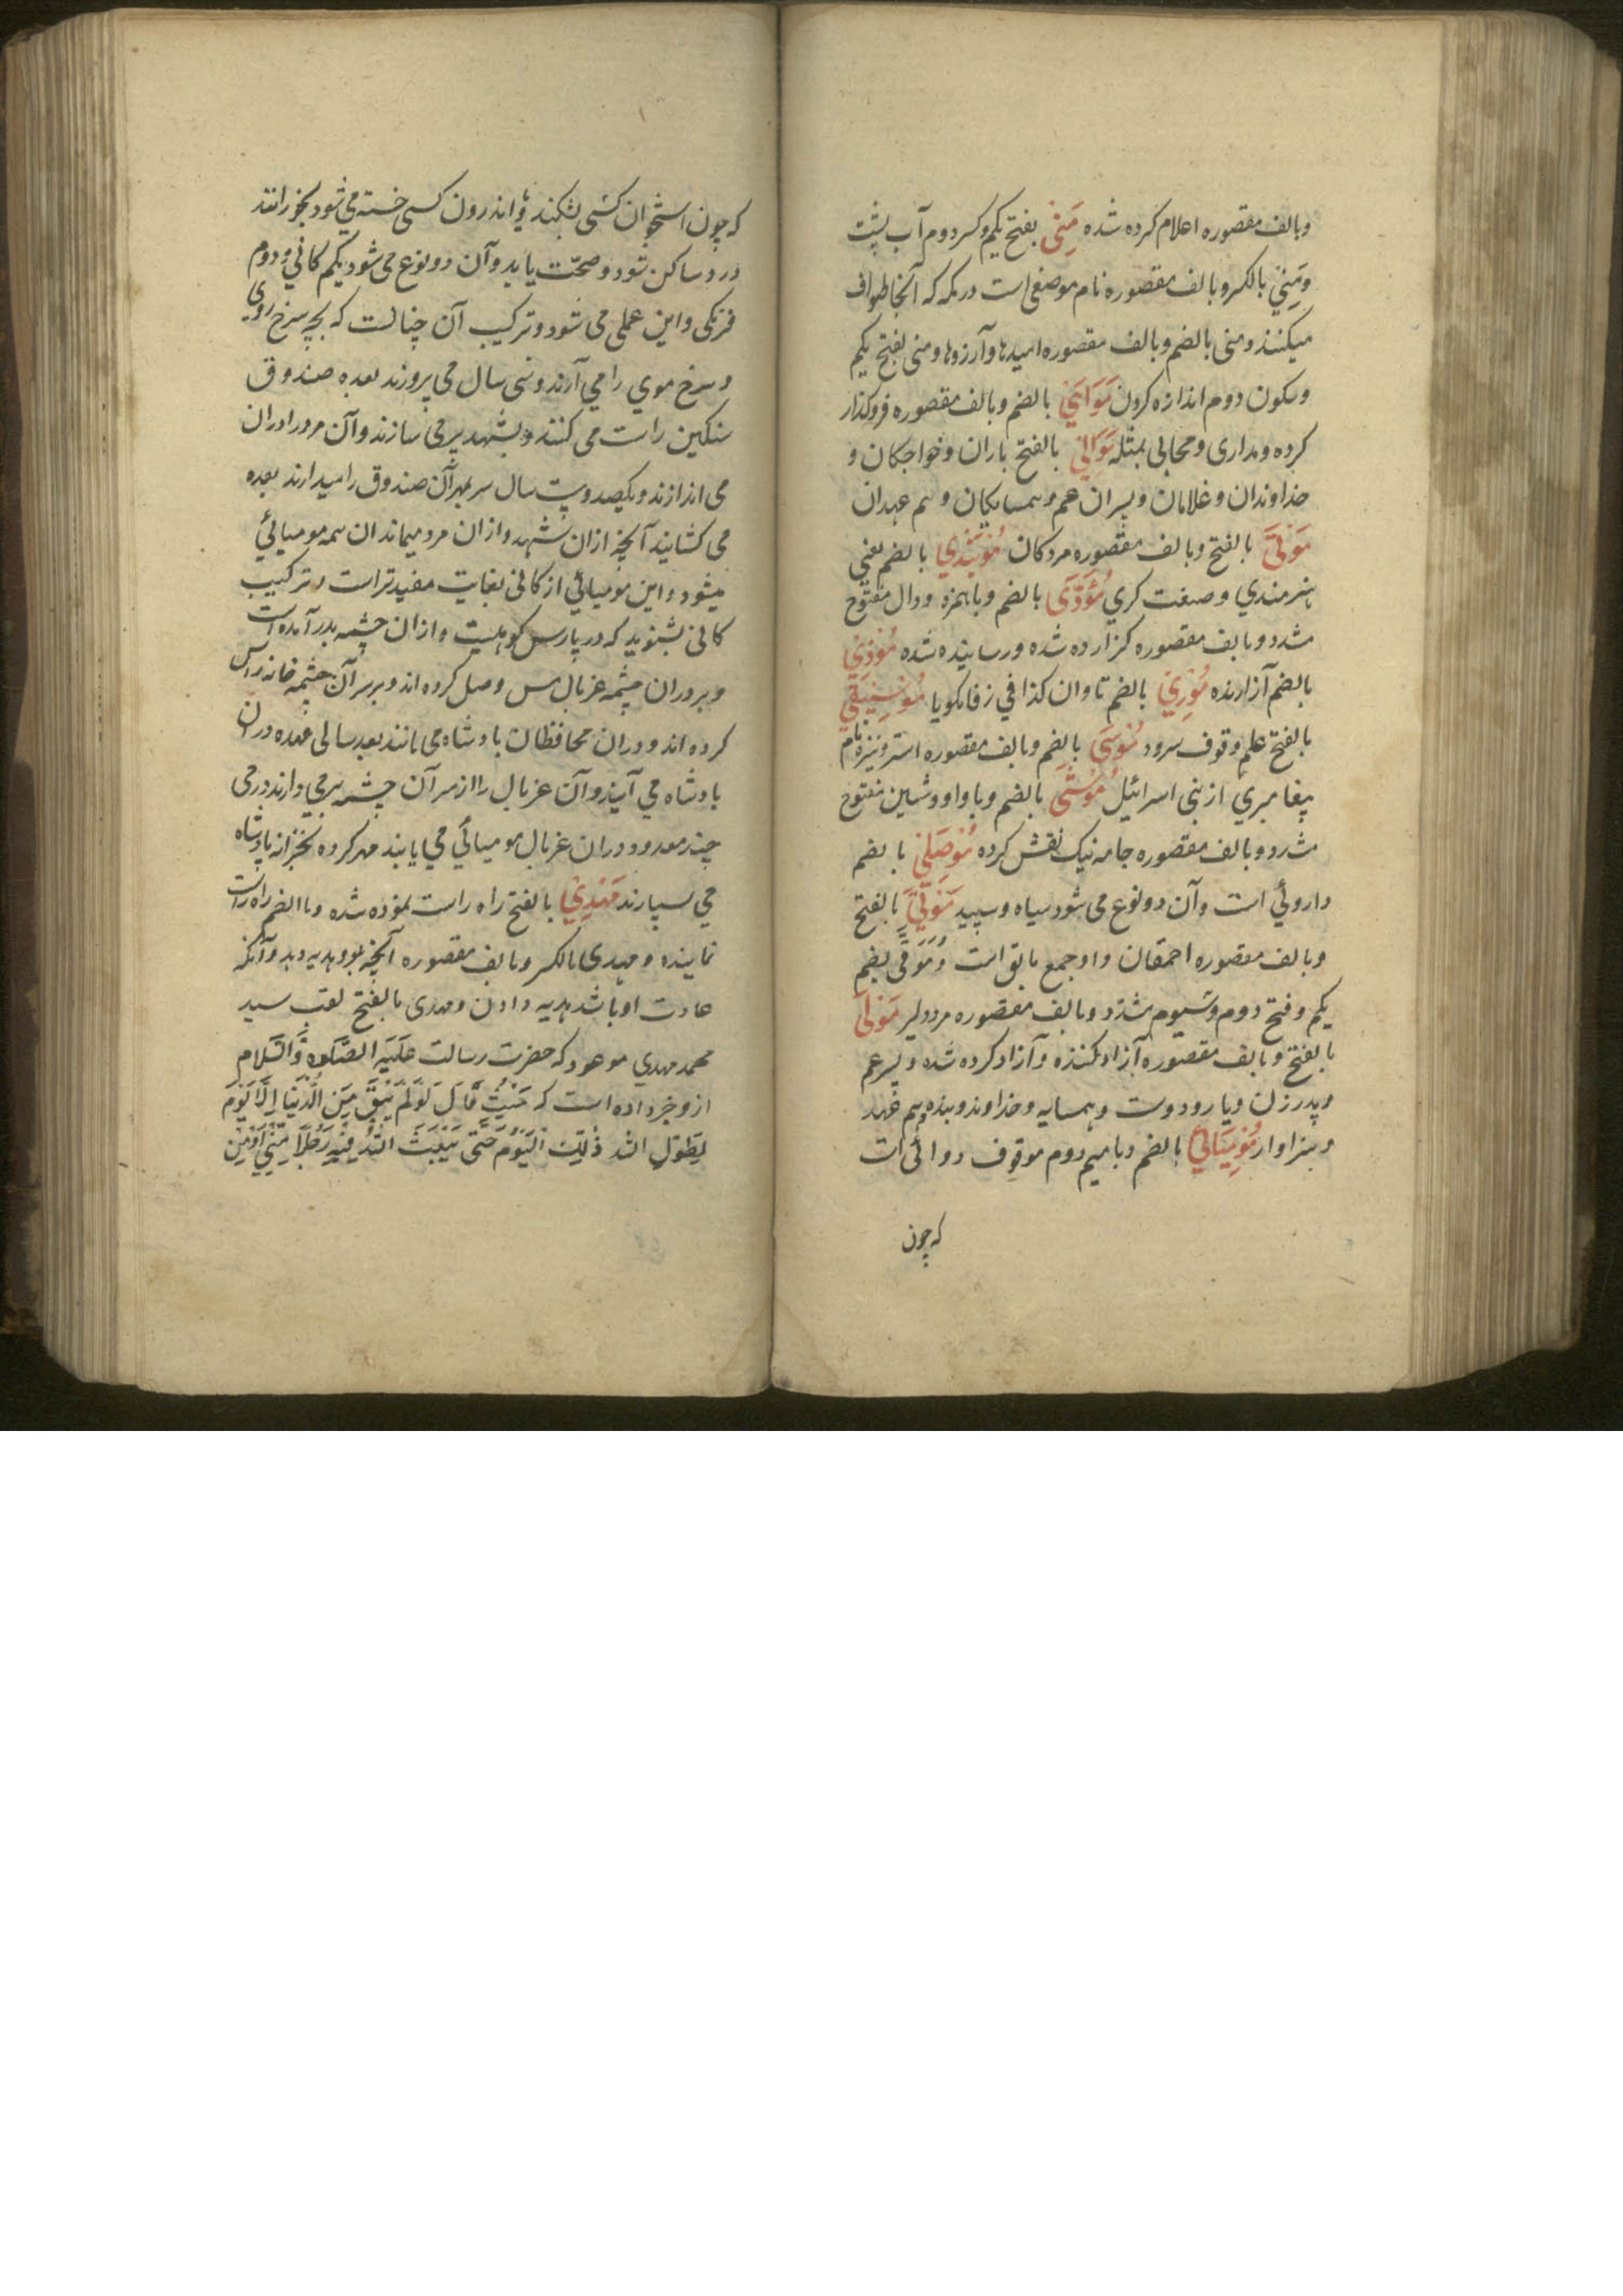 وبالف مقصوره اعلام کرده شده مَنِیْ بفتح یکم وکسر دوم آب پشت
ومِنیٰ بالکسر وبالف مقصوره نام موضعی است در مکه که آنجا طواف
میکنند ومنی بالضم وبالف مقصوره امیدها وآرزوها ومنی بفتح یکم
وسکون دوم اندازه کردن بالضم وبالف مقصوره فروکذار
کرده ومداری ومحابی بمثله مَوَالِیْ بالفتح یاران وخواجکان و
خداوندان وغلامان وپسران عم وهمسایکان وهم عهدان
مَوْتیٰ بالفتح وبالف مقصوره مردکان بالضم یعنی
هنرمندی وصنعت کری مُؤَدّیٰ بالضم وباهمزه ودال مفتوح
مشدد وبالف مقصوره کزارده شده ورسانیده شده مُوْذِیْ
بالضم آزارنده مُوْرِیْ بالضم تاوان کذا فی زفانکویا مُوْسِیْقِیْ
بالفتح علم وقوف سرود مُوْسَیٰ بالضم وبالف مقصوره استره ونیز نام
پیغامبری از بنی اسرائیل مُوَشّیٰ بالضم وبا واو وشین مفتوح
مشدد وبالف مقصوره جامه نیک نقش کرده مُوْصَلِیْ بالضم
داروئی است وآن دو نوع می شود سیاه وسپید بالفتح
وبالف مقصوره احمقان واو جمع مایق است ومُوَقّی بضم
یکم وفتح دوم وسیوم مشدد وبالف مقصوره مرد دلیر مَوْلیٰ
بالفتح وبالف مقصوره آزاد کننده وآزاد کرده شده وپسر عم
وپدر زن ویار ودوست وهمسایه وخداوند وبنده وهم عهد
وسزاوار مُوْمِیَائِیْ بالضم وبا میم دوم موقوف دوائی است
که چون
که چون استخوان کسی بشکند یا اندرون کسی خسته می شود بخورانند
درد ساکن شود وصحّت یابد وآن دو نوع می شود یکم کانی ودوم
فرنکی واین عملی می شود وترکیب آن چنانست که بچه سرخ روی
وسرخ موی را می آرند وسی سال می پرورند بعده صندوق
سنکین راست می کنند وبشهد پر می سازند وآن مرد را دران
می اندازند ویکصد وبیست سال سر بمهر آن صندوق را میدارند بعده
می کشایند آنچه ازان شهد وازان مرد میماند ان همه مومیائی
میشود واین مومیائی از کانی بغایت مفید تر است وترکیب
کانی بشنوید که در پارس کوهیست وازان چشمه بدر آمده است
وبر دران چشمه غربال مس وصل کرده اند وبر سر آن چشمه خانه راس
کرده اند ودران محافظان بادشاه می مانند بعد سالی عهده دران
بادشاه می آیند وآن غربال را از سر آن چشمه بر می دارند درمی
چند معدود دران غربال مومیائی می یابند مهر کرده بخزانه بادشاه
می سپارند مَهْدِیْ بالفتح راه راست نموده شده وبا الضم راه راست
نماینده ومهدی بالکسر وبالف مقصوره آنچه بدو هدیه دهد وآنکه
عادت او باشد هدیه دادن ومهدی بالفتح لقب سید
محمد مهدی موعود که حضرت رسالت عَلَیْهِ الصَّلٰوة وَالسَّلام
ازو خبر داده است که قَالَ لَوْ لَمْ یَبْقَ مِنَ الدُّنْیَا اِلَّا یَوْم
لَطَوَّلَ اللّٰه ذٰلِکَ الْیَوْمَ حَتّٰی یَبْعَثَ اللّٰهُ فِیْهِ رَجُلًا مِنِّیْ اَوْ مِنْ